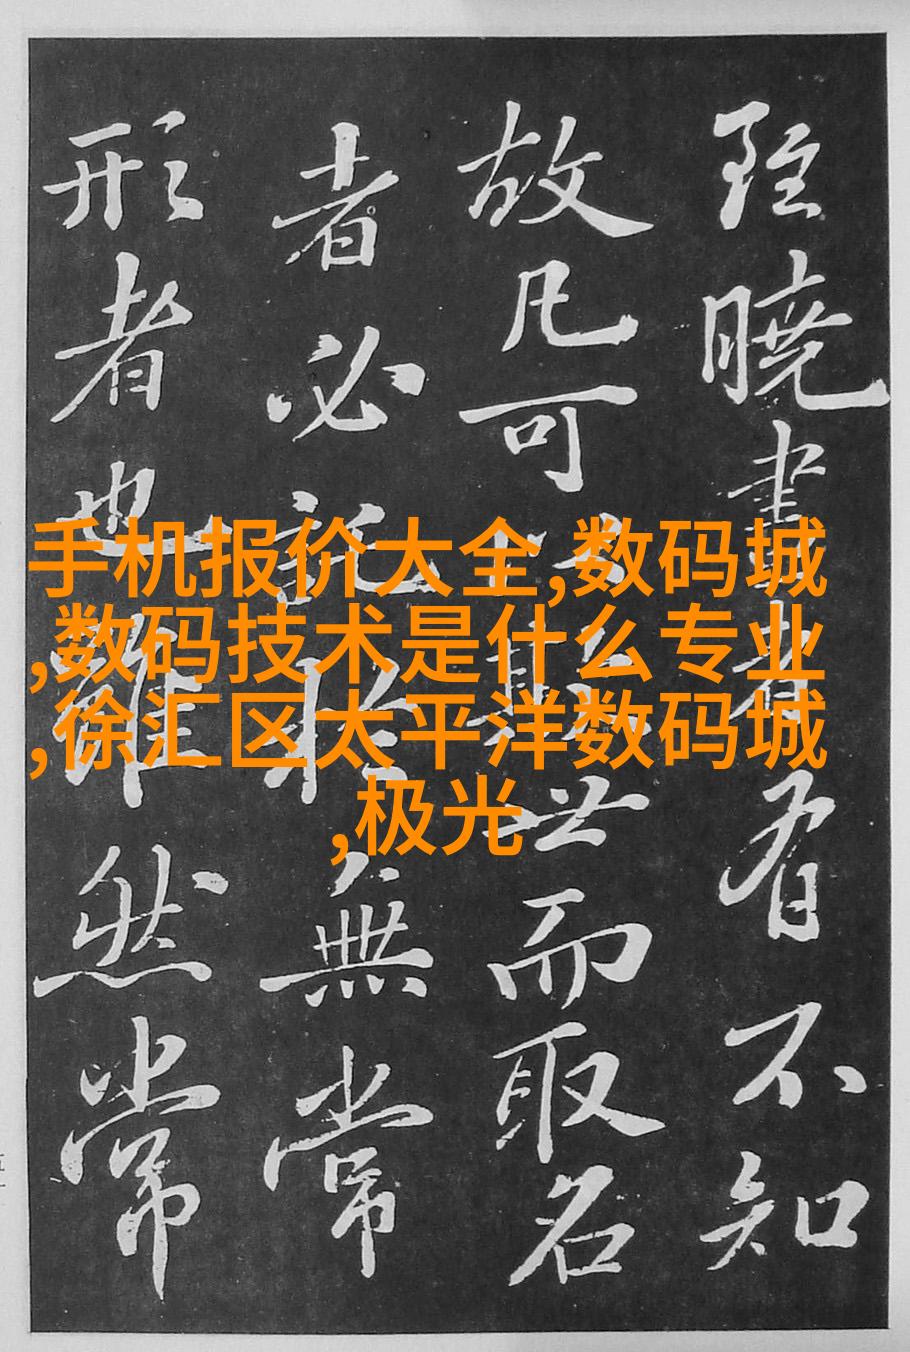 手机报价大全,数码城
,数码技术是什么专业
,徐汇区太平洋数码城
,极光
雖曉畫者有不知
故凡可以欺世而取名
者必託於無常
形者也雖然常